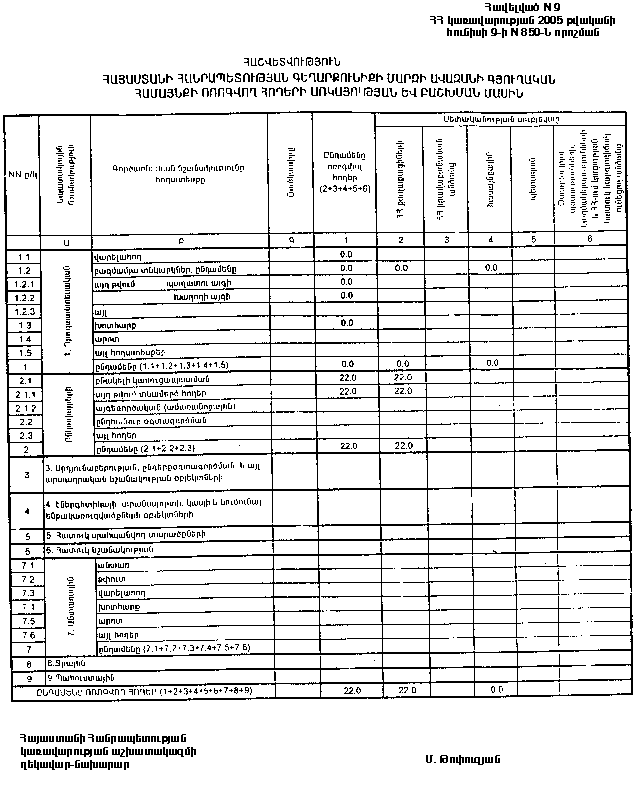 Հավելված N 9
ՀՀ կառավարության 2005 թվականի
հունիսի 9-ի N 850-Ն որոշման
ՀԱՇՎԵՏՎՈՒԹՅՈՒՆ
ՀԱՅԱՍՏԱՆԻ ՀԱՆՐԱՊԵՏՈՒԹՅԱՆ ԳԵՂԱՐՔՈՒՆԻՔԻ ՄԱՐԶԻ ԱՎԱԶԱՆԻ ԳՅՈՒՂԱԿԱՆ
ՀԱՄԱՅՆՔԻ ՈՌՈԳՎՈՂ ՀՈՂԵՐԻ ԱՌԿԱՅՈՒԹՅԱՆ ԵՎ ԲԱՇԽՄԱՆ ՄԱՍԻՆ
NN ը/կ
Նպատակային նշանակություն
Գործառնական նշանակությունը
հողատեսքը
Ընդամենը
ոռոգվող
հողեր
(2+3+4+5+6)
Սեփականության սուբյեկտը
ՀՀ քաղաքացիների
ՀՀ իրավաբանական անձանց
համայնքային
պետական
Ա Բ Գ 1 2 3 4 5 6
1. Գյուղատնտեսական
1.1 վարելահող 0.0
1.2 բազմամյա տնկարկներ, ընդամենը 0.0 0.0 0.0
1.2.1 այդ թվում պտղատու այգի 0.0
1.2.2 խաղողի այգի 0.0
1.2.3 այլ
1.3 խոտհարք 0.0
1.4 արոտ
1.5 այլ հողատեսքեր
1 ընդամենը (1.1+1.2+1.3+1.4+1.5) 0.0 0.0 0.0
2.1 բնակելի կառուցապատման 22.0 22.0
2.1.1 այդ թվում՝ տնամերձ հողեր 22.0 22.0
2.1.2 այգեգործական (ամառանոցային)
2.2 ընդհանուր օգտագործման
2.3 այլ հողեր
2 ընդամենը (2.1+2.2+2.3) 22.0 22.0
3 3. Արդյունաբերության, ընդերքօգտագործման և այլ
արտադրական նշանակության օբյեկտների
4 4. էներգետիկայի, տրանսպորտի, կապի և կոմունալ
ենթակառուցվածքների օբյեկտների
5 5. Հատուկ պահպանվող տարածքների
6 6. Հատուկ նշանակության
7. Անտառային
7.1 անտառ
7.2 թփուտ
7.3 վարելահող
7.4 խոտհարք
7.5 արոտ
7.6 այլ հողեր
7 ընդամենը (7.1+7.2+7.3+7.4+7.5+7.6)
8 8.Ջրային
9 9.Պահուստային
ԸՆԴԱՄԵՆԸ ՈՌՈԳՎՈՂ ՀՈՂԵՐ (1+2+3+4+5+6+7+8+9) 22.0 22.0 0.0
Հայաստանի Հանրապետության
կառավարության աշխատակազմի
ղեկավար-նախարար
Մ. Թոփուզյան